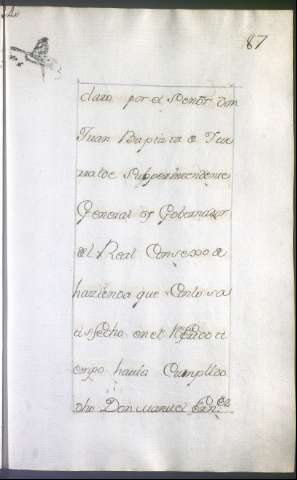 87
claro por el Señor Don
Juan Baptista de Ytu
rralde Superintendente
General y Gobernador
del Real Consexo de
hazienda que Conlo sa
tisfecho en el Rfdoo ti
empo havia Cumplido
dho Don Manuel